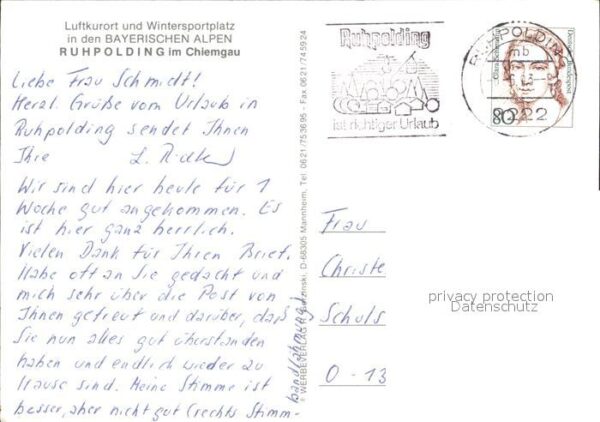 Luftkurort und Wintersportplatz
in den BAYERISCHEN ALPEN
RUHPOLDING im Chiemgau
Liebe Frau Schmidt!
Herzl. Grüße vom Urlaub in
Ruhpolding sendet Ihnen
Ihre
Wir sind hier heute für 1
Woche gut angekommen. Es
ist hier ganz herrlich.
Vielen Dank für Ihren Brief.
Habe oft an Sie gedacht und
mich sehr über die Post von
Ihnen gefreut und darüber, daß
Sie nun alles gut überstanden
haben und endlich wieder zu
Hause sind. Meine Stimme ist
besser, aber nicht gut (rechts Stimm-
bandlähmung)
WERBEVERLAG D-68305 Mannheim, Tel. 0621/753695 - Fax 0621/745924
Ruhpolding
ist richtiger Urlaub
RUHPOLDING
mb
8222
Deutsche Bundespost
80
Frau
Christe
Schuls
O-13
privacy protection
Datenschutz